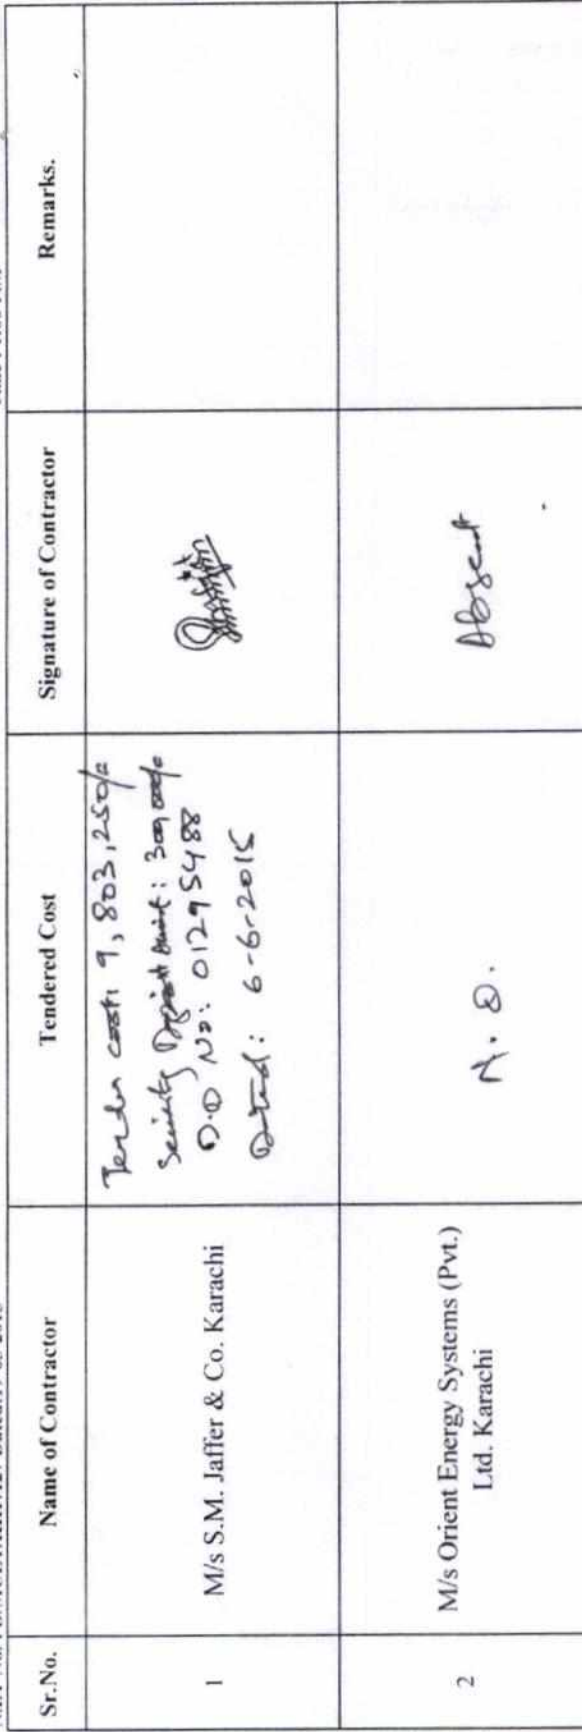 Sr.No.
Name of Contractor
Tendered Cost
Signature of Contractor
Remarks.
1
M/s S.M. Jaffer & Co. Karachi
Tender cost: 9,803,250/=
Security Deposit
D.D No: 01295488
Dated: 6-6-2015
2
M/s Orient Energy Systems (Pvt.)
Ltd. Karachi
Absent